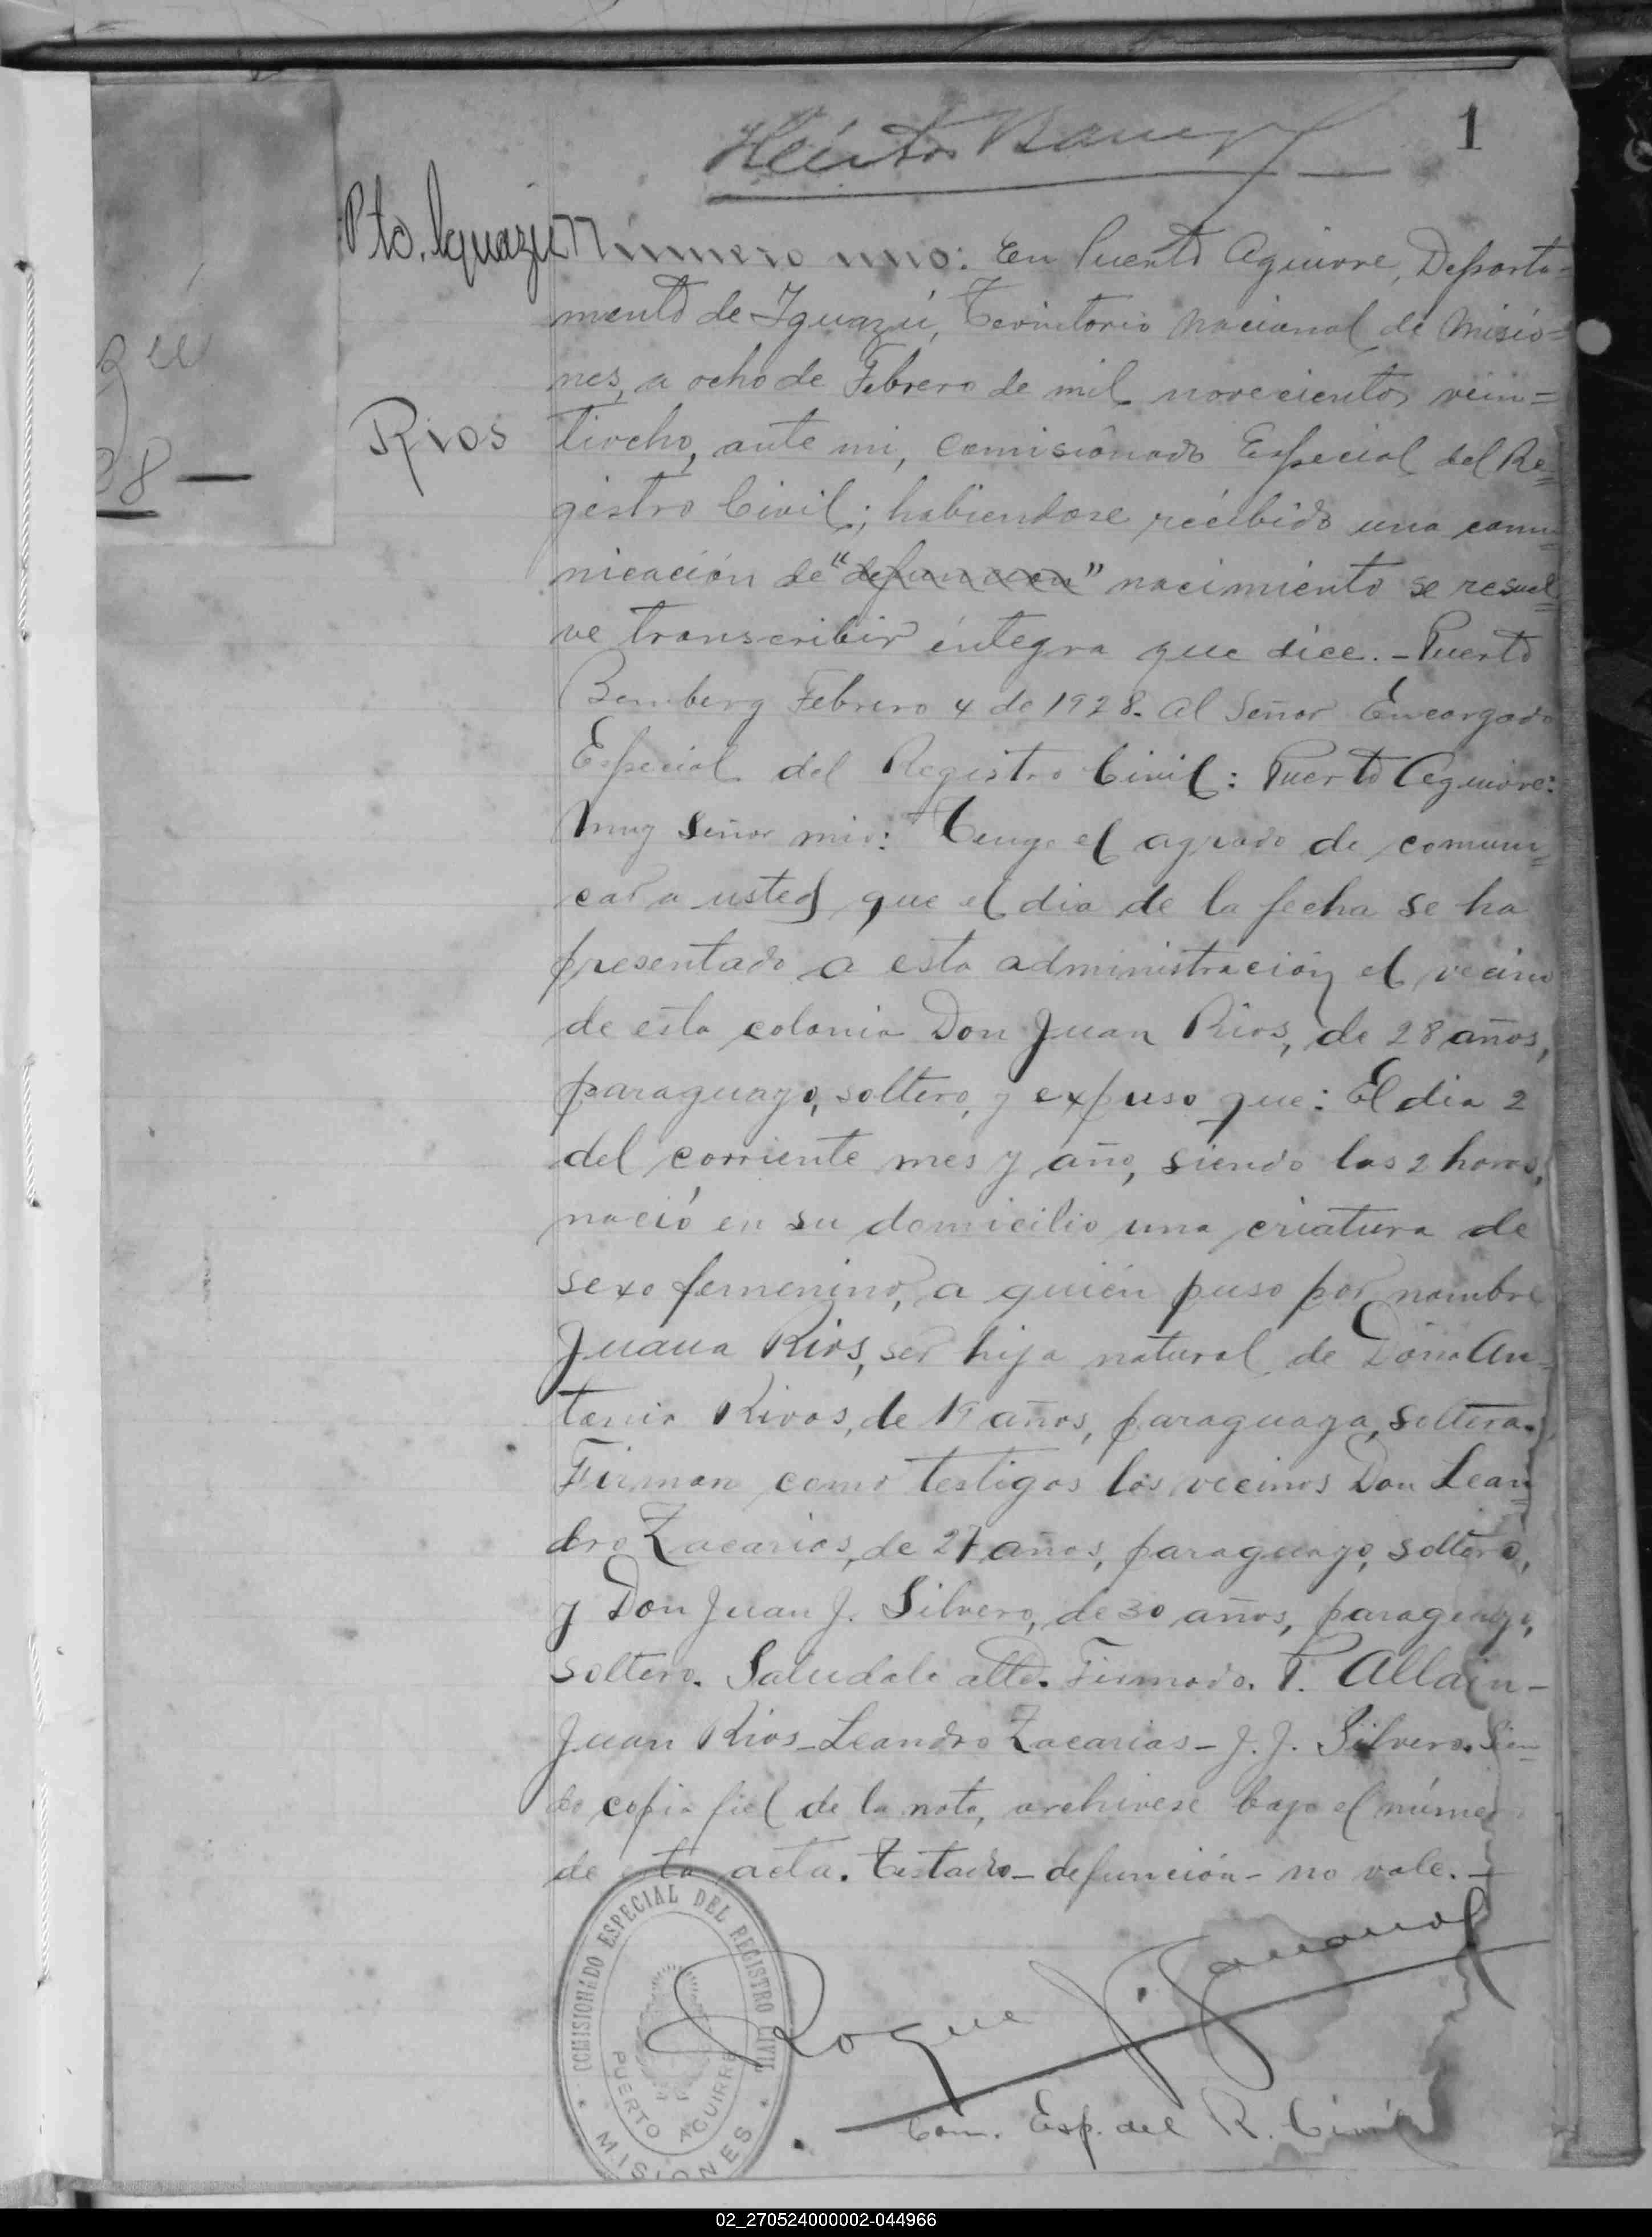 1
Pto. Iguazú
Número uno: En Puerto Aguirre, Departa=
mento de Iguazú, Territorio Nacional de Misio=
nes, a ocho de Febrero de mil novecientos vein=
Rios
tiocho, ante mi, Comisionado Especial del Re=
gistro Civil; habiendose recibido una comu=
nicación de "defunción" nacimiento se resuel=
ve transcribir integra que dice. - Puerto
Bemberg Febrero 4 de 1928. Al Señor Encargado
Especial del Registro Civil: Puerto Aguirre:
Muy Señor mio: Tengo el agrado de comuni=
car a usted que el dia de la fecha se ha
presentado a esta administración el vecino
de esta colonia Don Juan Rios, de 28 años,
paraguayo, soltero, y expuso que: El dia 2
del corriente mes y año, siendo las 2 horas,
nació en su domicilio una criatura de
sexo femenino, a quién puso por nombre
Juana Rios, ser hija natural de Doña An=
tonia Rivas, de 19 años, paraguaya, soltera.
Firman como testigos los vecinos Don Lean=
dro Zacarias, de 27 años, paraguayo, soltero,
y Don Juan J. Silvero, de 30 años, paraguayo,
soltero. Saludale atto. Firmado. P. Allain -
Juan Rios - Leandro Zacarias - J. J. Silvero. Sien=
do copia fiel de la nota, archivese bajo el número
de esta acta. Testado - defunción - no vale. -
COMISIONADO ESPECIAL DEL REGISTRO CIVIL
PUERTO AGUIRRE
MISIONES
Roque J.
Com. Esp. del R. Civil
02_270524000002-044966